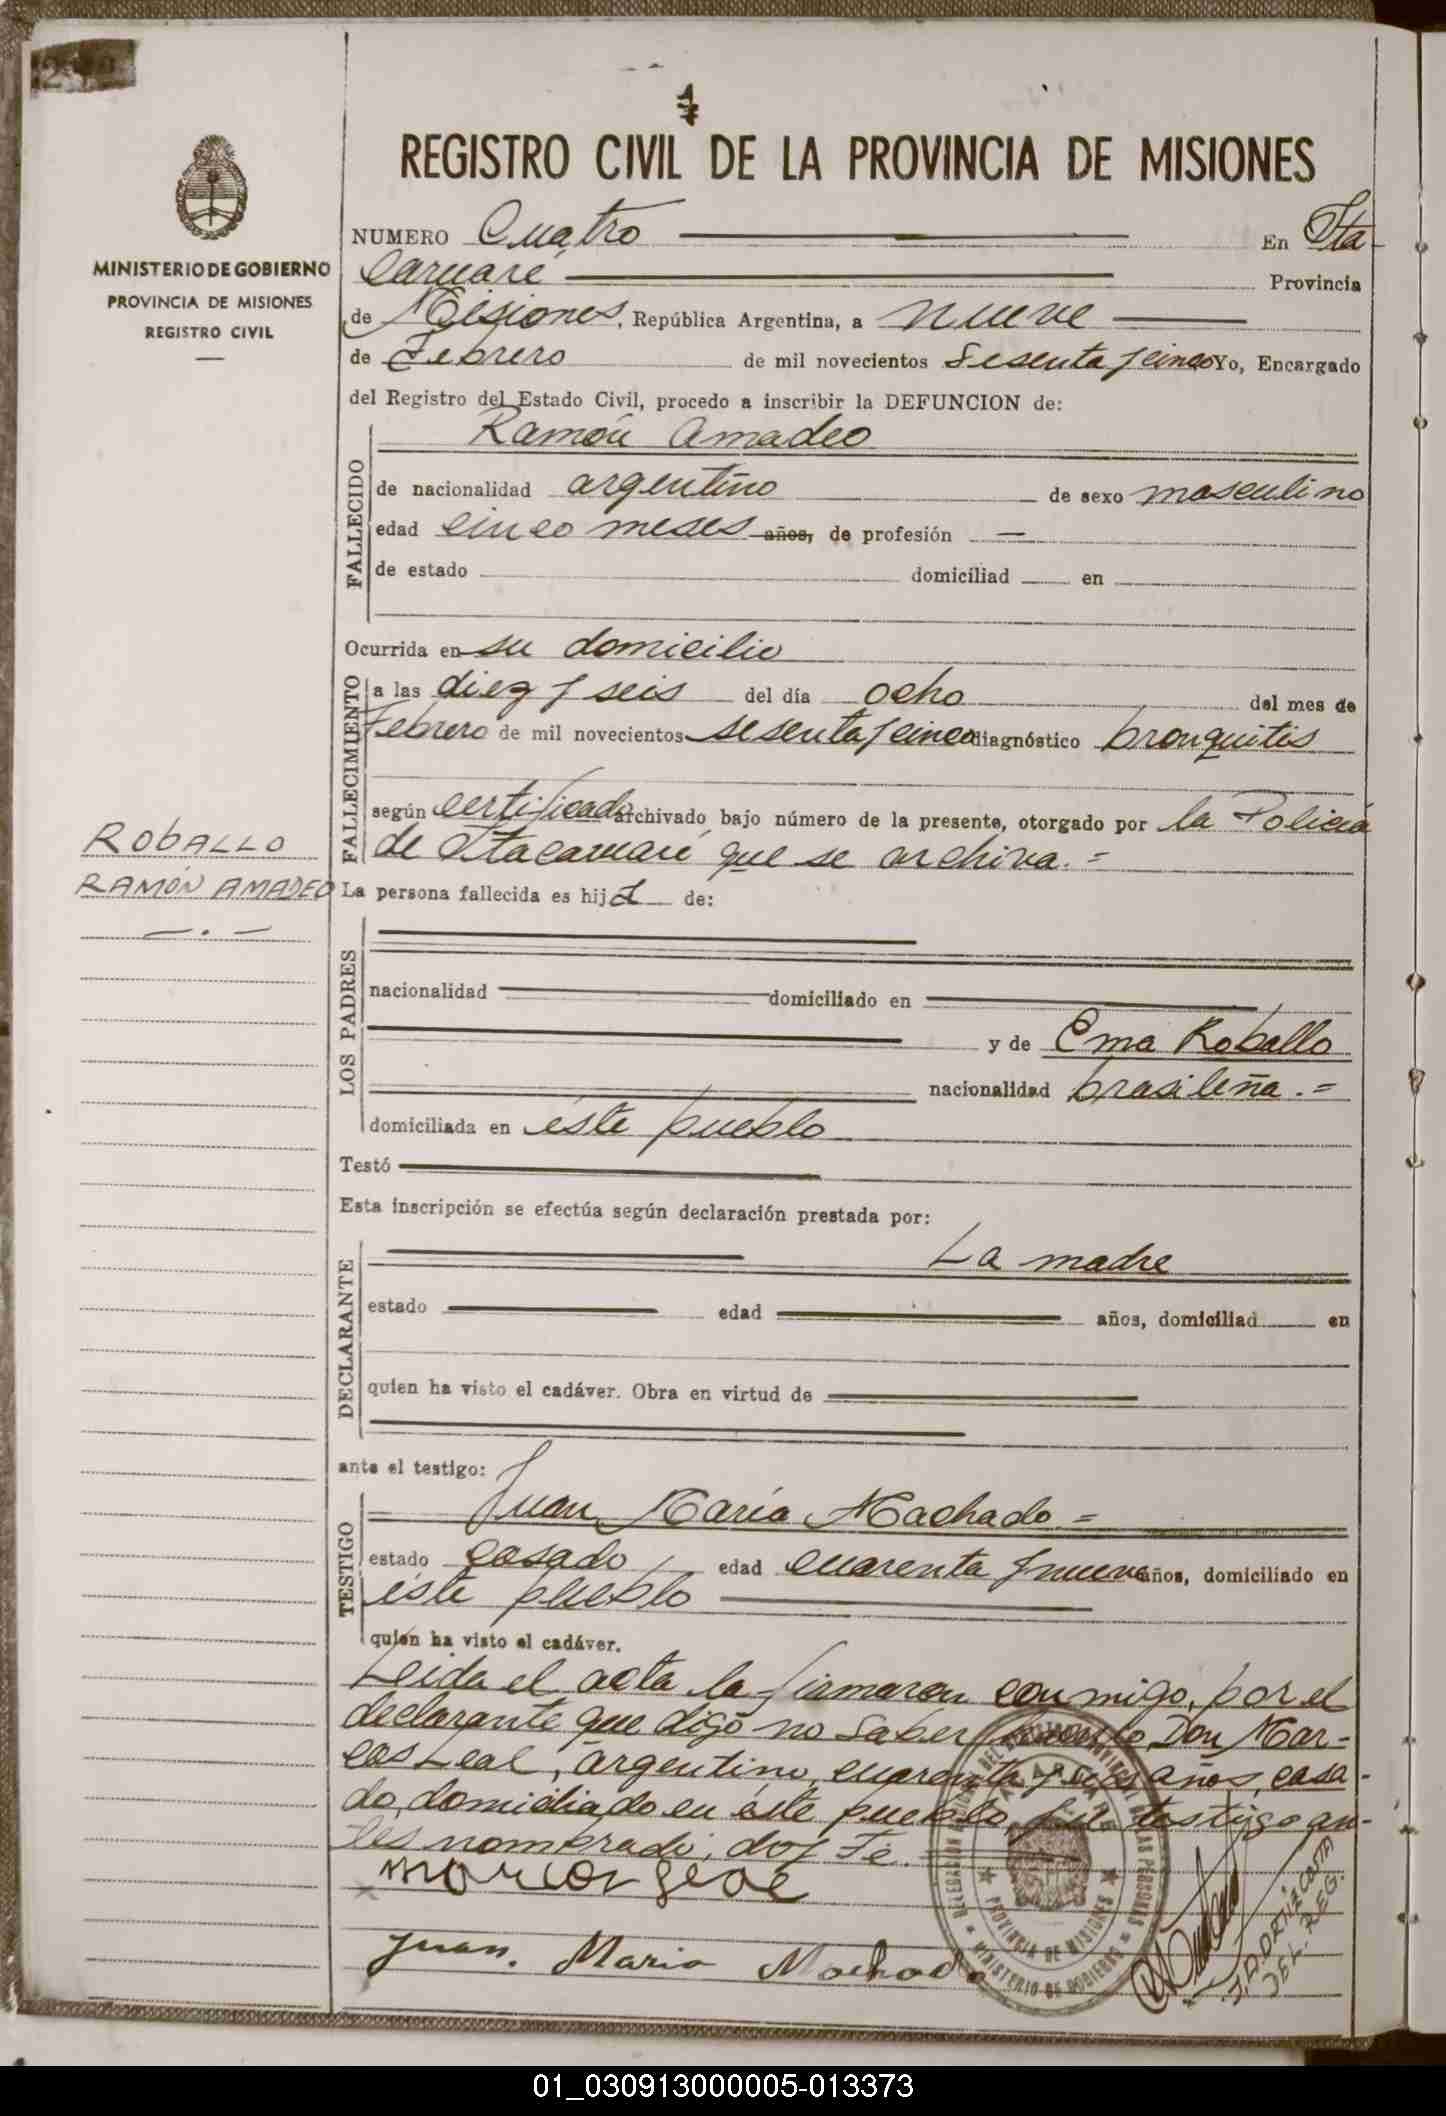 4
REGISTRO CIVIL DE LA PROVINCIA DE MISIONES
MINISTERIO DE GOBIERNO
PROVINCIA DE MISIONES
REGISTRO CIVIL
NUMERO Cuatro En Ita-
Caruaré Provincia
de Misiones, República Argentina, a nueve
de Febrero de mil novecientos sesenta y cinco Yo, Encargado
del Registro del Estado Civil, procedo a inscribir la DEFUNCION de:
Ramón Amadeo
FALLECIDO
de nacionalidad argentino de sexo masculino
edad cinco meses años, de profesión —
de estado domiciliad en
Ocurrida en su domicilio
FALLECIMIENTO
a las diez y seis del día ocho del mes de
Febrero de mil novecientos sesenta y cinco diagnóstico bronquitis
según certificado archivado bajo número de la presente, otorgado por la Policia
de Itacaruaré que se archiva.=
ROBALLO
RAMÓN AMADEO
— . —
La persona fallecida es hijo de:
LOS PADRES
nacionalidad domiciliado en
y de Ema Roballo
nacionalidad brasileña.=
domiciliada en éste pueblo
Testó
Esta inscripción se efectúa según declaración prestada por:
La madre
DECLARANTE
estado edad años, domiciliad en
quien ha visto el cadáver. Obra en virtud de
ante el testigo:
Juan María Machado =
TESTIGO
estado casado edad cuarenta y nueve años, domiciliado en
éste pueblo
quien ha visto el cadáver.
Leida el acta la firmaron conmigo, por el
declarante que digo no saber Don Mar-
cos Leal, argentino, cuarenta y años, casa-
do, domiciliado en éste pueblo, testigo an-
tes nombrado, doy Fe.
marcos leal
Juan. Maria Machado
J. A. ORTIZ COSTA
DEL. REG.
PROVINCIA DE MISIONES
MINISTERIO DE GOBIERNO
01_030913000005-013373